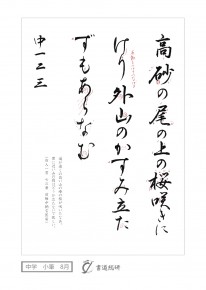 高砂の尾の上の桜咲きに
けり外山のかすみ立た
ずもあらなむ
中一二三
中学 小筆 6月
書道総研